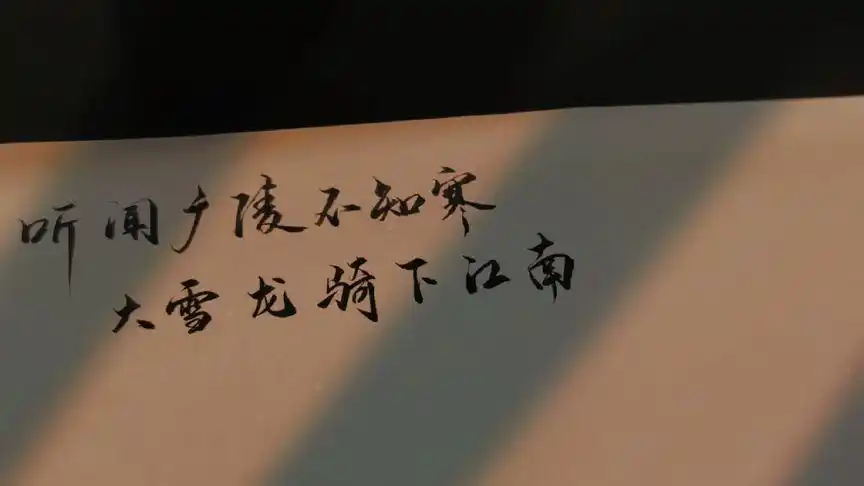 听闻广陵不知寒
大雪龙骑下江南